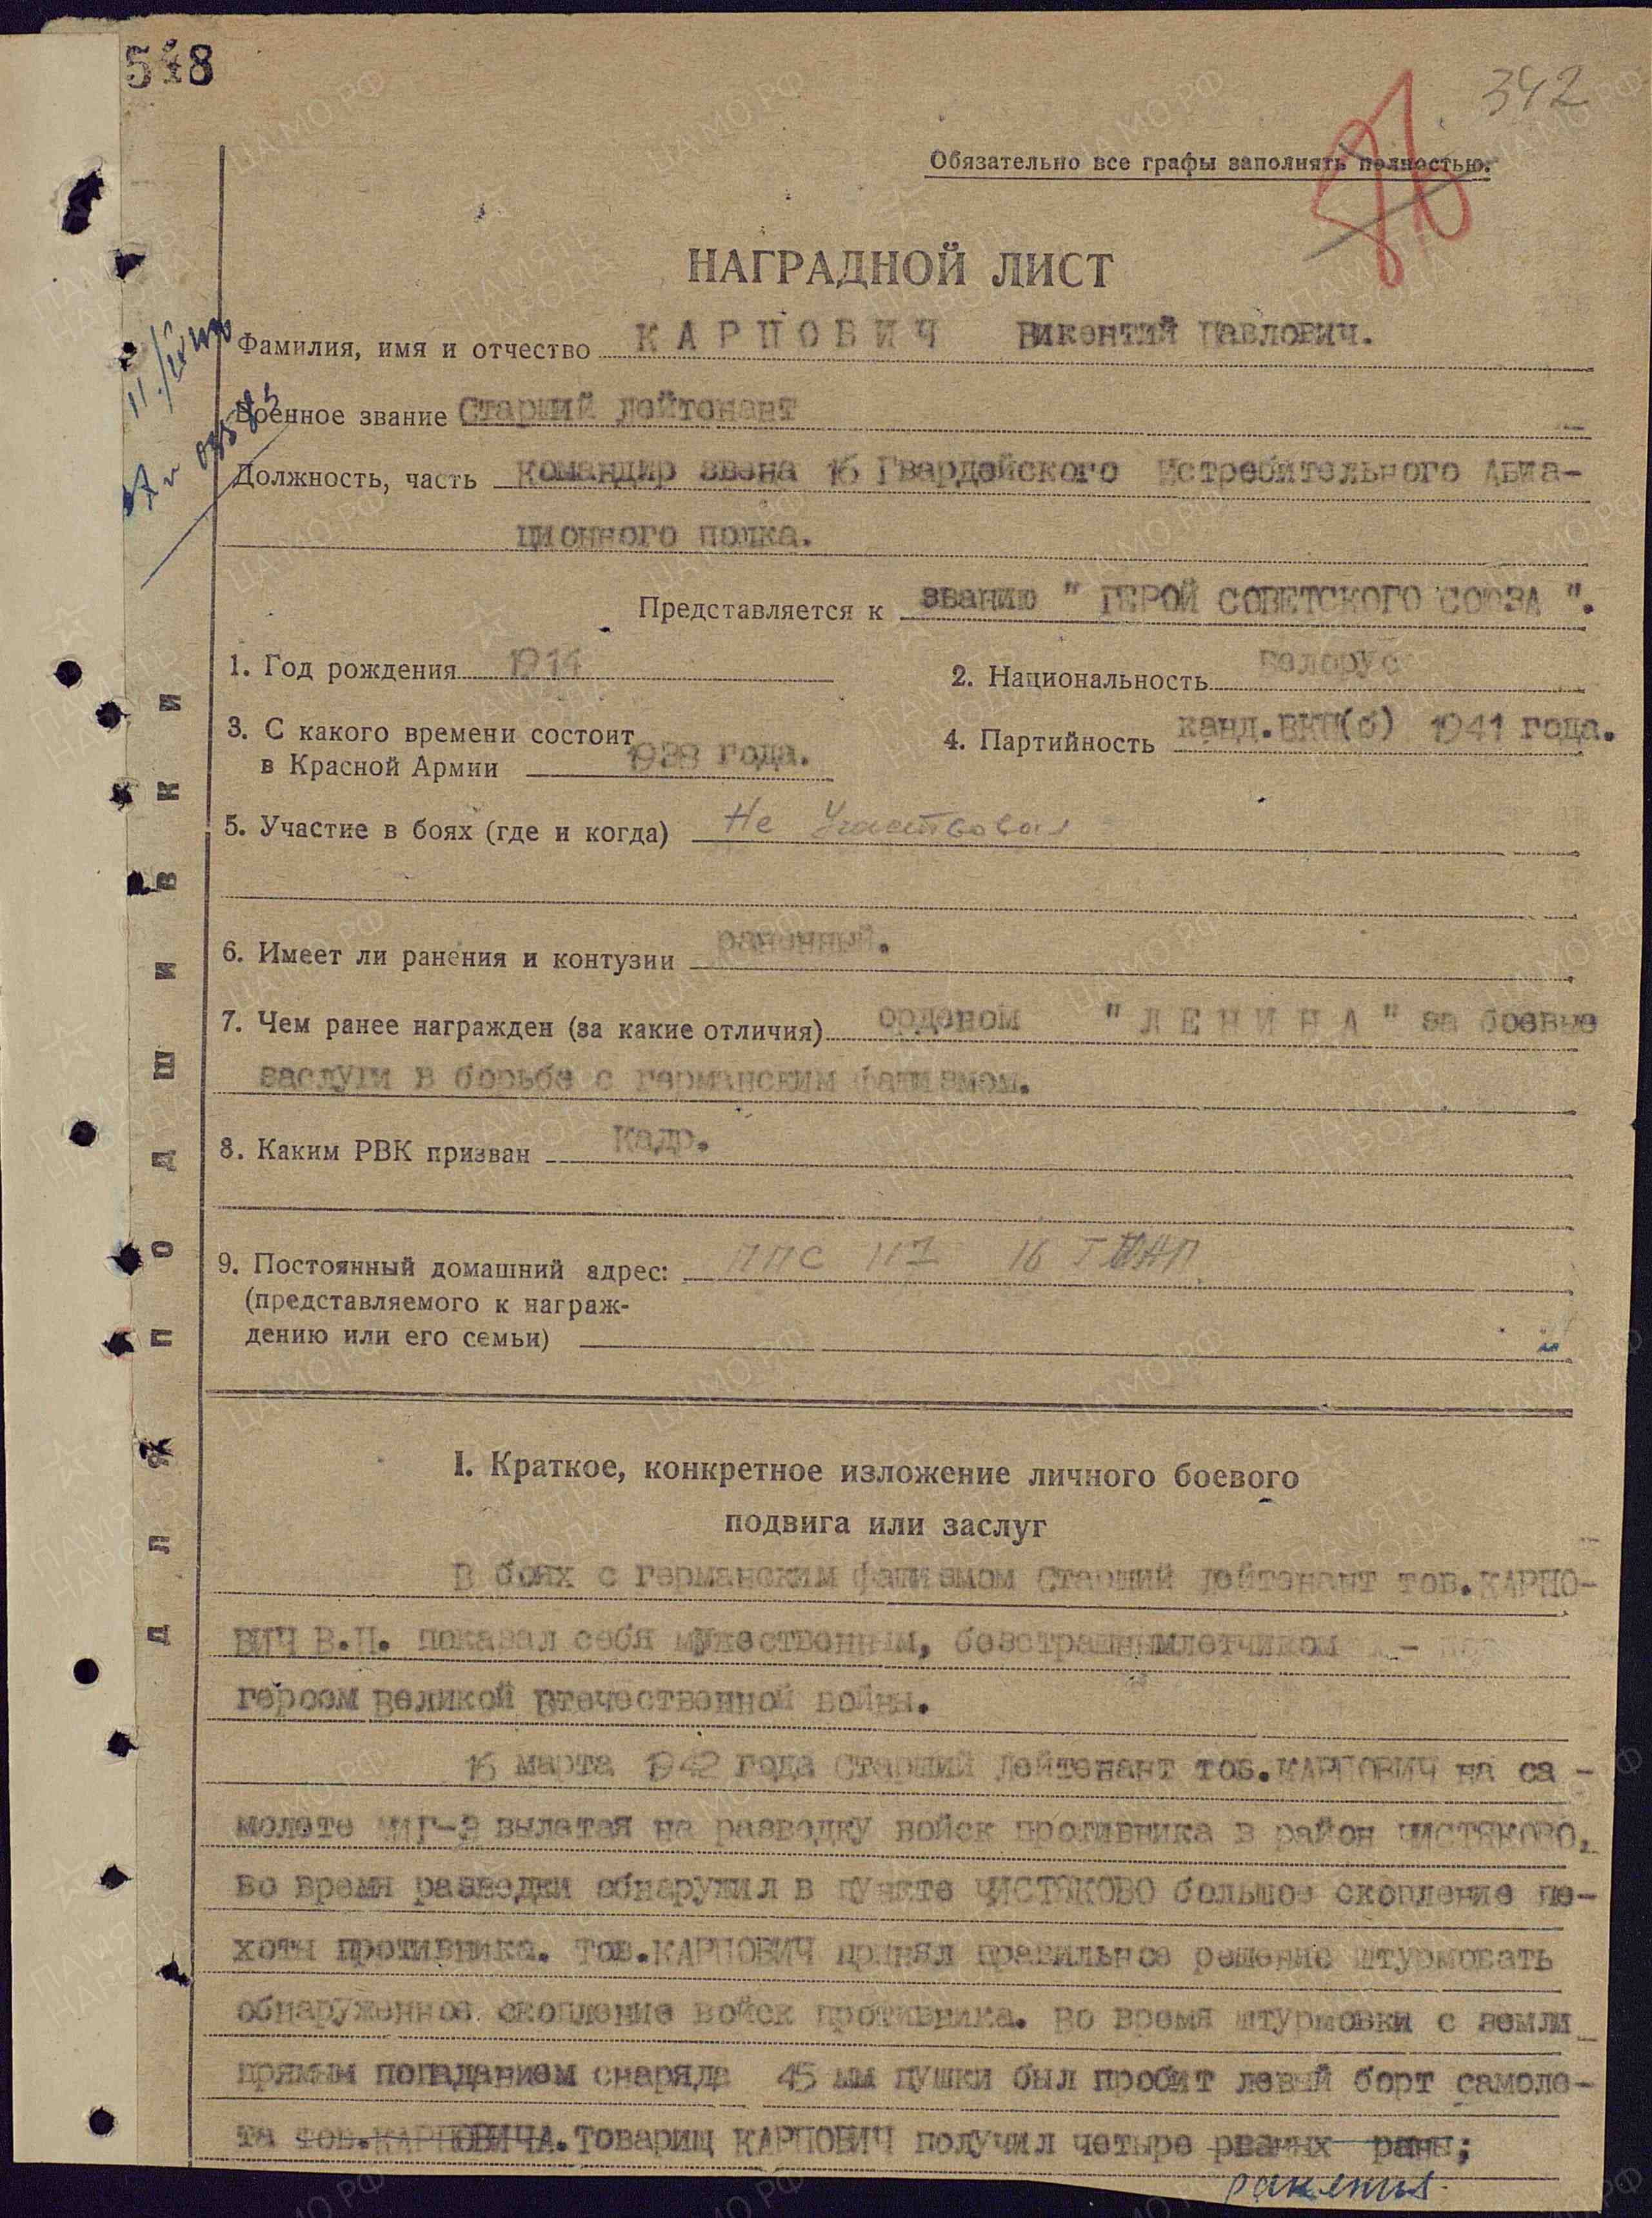 548
342
Обязательно все графы заполнять полностью.
НАГРАДНОЙ ЛИСТ
Фамилия, имя и отчество КАРПОВИЧ Викентий Павлович.
Военное звание Старший лейтенант
Должность, часть командир звена 16 Гвардейского Истребительного Авиа-
ционного полка.
Представляется к званию " ГЕРОЙ СОВЕТСКОГО СОЮЗА ".
1. Год рождения 1914
2. Национальность белорус
3. С какого времени состоит
в Красной Армии 1938 года.
4. Партийность канд.ВКП(б) 1941 года.
5. Участие в боях (где и когда) Не Участвовал
6. Имеет ли ранения и контузии раненный.
7. Чем ранее награжден (за какие отличия) орденом "ЛЕНИНА" за боевые
заслуги в борьбе с германским фашизмом.
8. Каким РВК призван Кадр.
9. Постоянный домашний адрес: ППС 117 16 ГИАП.
(представляемого к награж-
дению или его семьи)
ДЛЯ ПОДШИВКИ
I. Краткое, конкретное изложение личного боевого
подвига или заслуг
В боях с германским фашизмом Старший лейтенант тов.КАРПО-
ВИЧ В.П. показал себя мужественным, безстрашнымлетчиком -
героем великой отечественной войны.
16 марта 1942 года Старший Лейтенант тов.КАРПОВИЧ на са -
молете МИГ-3 вылетая на разведку войск противника в район ЧИСТЯКОВО,
Во время разведки обнаружил в пункте ЧИСТЯКОВО большое скопление пе-
хоты противника. Тов.КАРПОВИЧ принял правильное решение штурмовать
обнаруженное скопление войск противника. Во время штурмовки с земли
прямым попаданием снаряда 45 мм пушки был пробит левый борт самоле-
та тов.КАРПОВИЧА.Товарищ КАРПОВИЧ получил четыре рваных раны;
ранения.